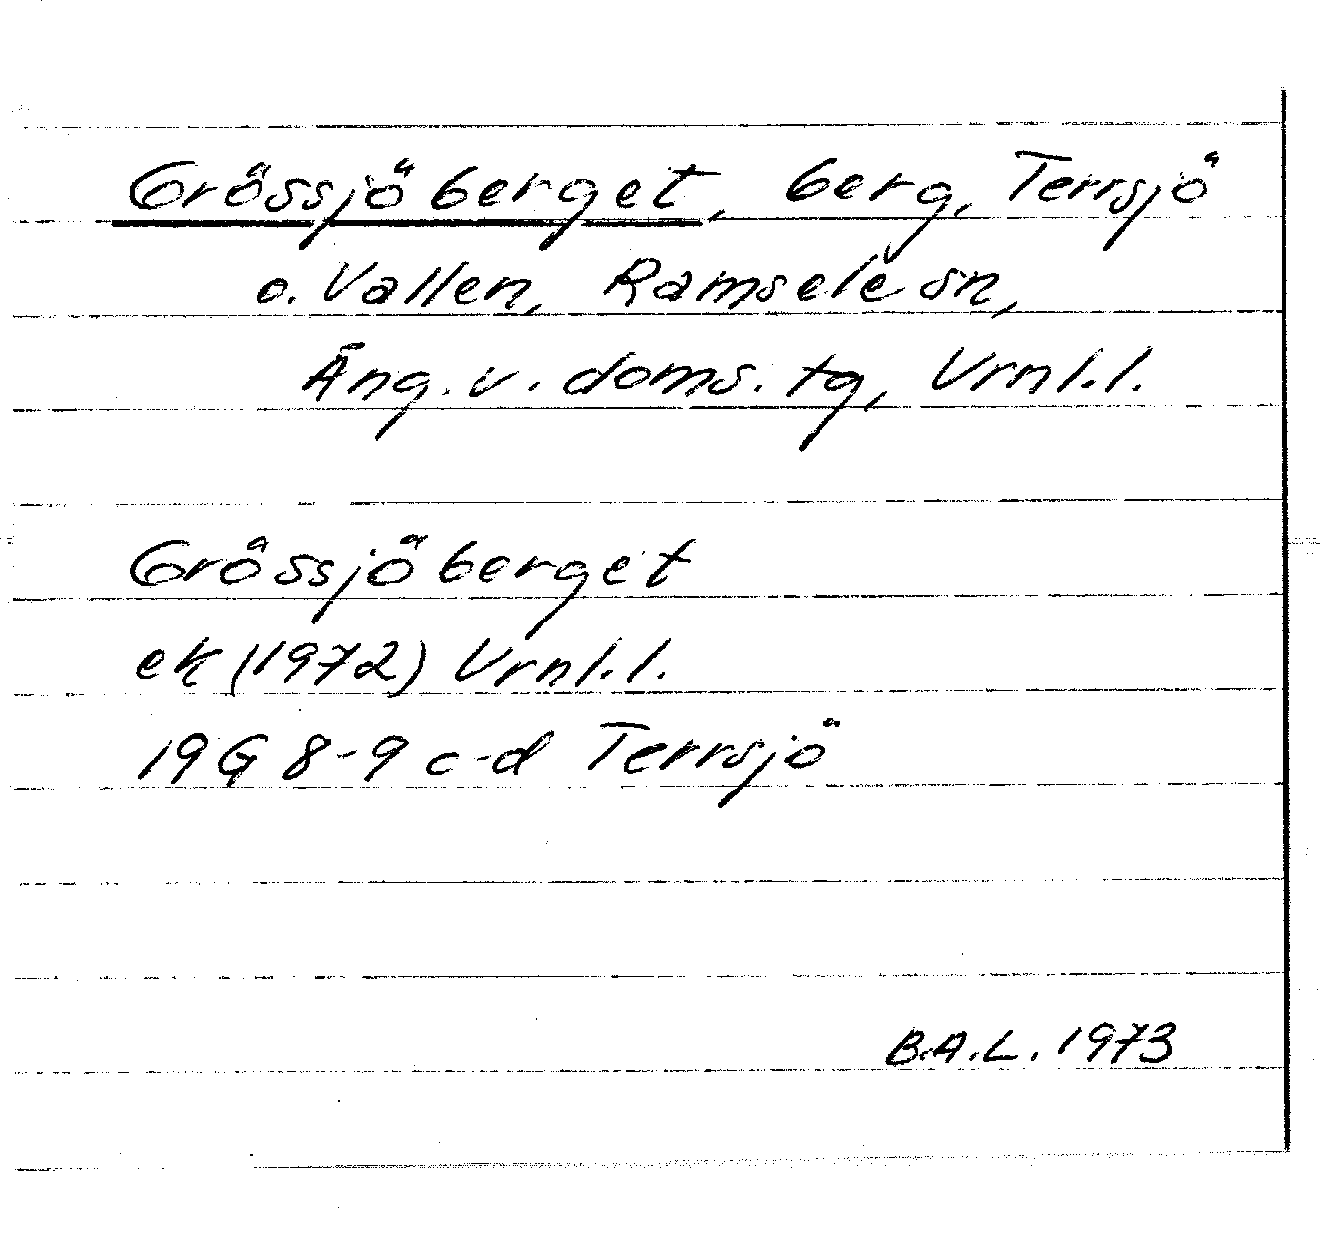 Grössjöberget, berg, Terrsjö
o. Vallen, Ramsele sn,
Äng. v. doms. tg, Vrnl. l.
Grössjöberget
ek (1972) Vrnl. l.
19 G 8-9 c-d Terrsjö
B.A.L. 1973